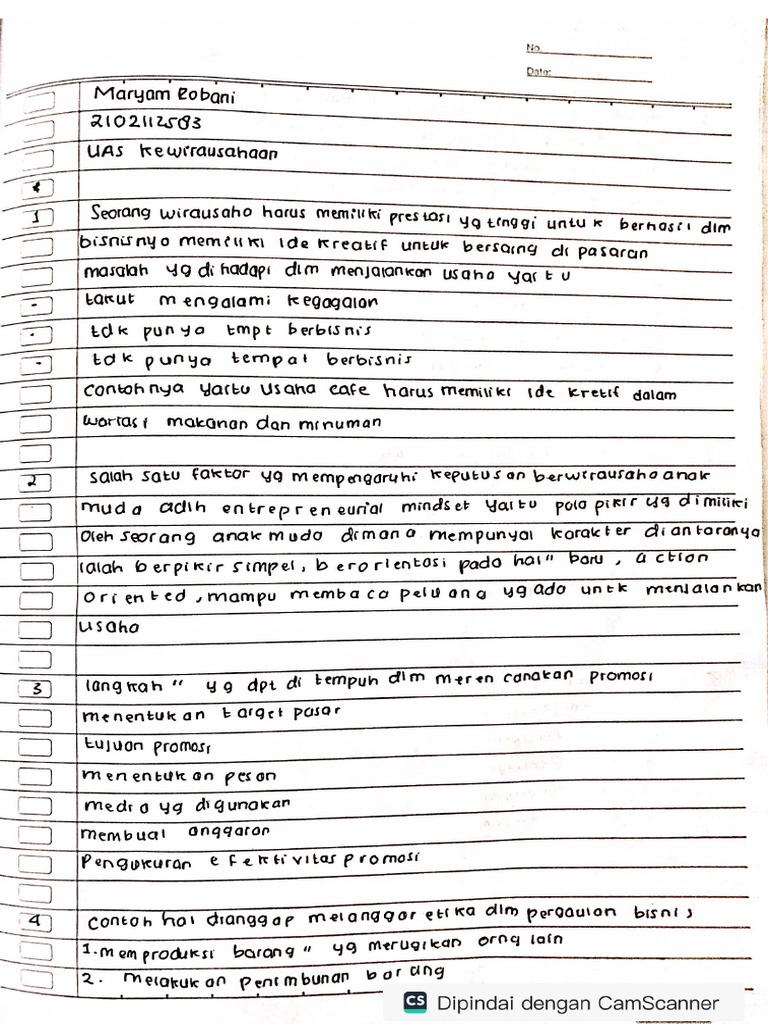 No.
Date:
Maryam Robani
2102112583
UAS Kewirausahaan
1 Seorang wirausaha harus memiliki prestasi yg tinggi untuk berhasil dlm
bisnisnya memiliki ide kreatif untuk bersaing di pasaran
masalah yg dihadapi dlm menjalankan usaha yaitu
- takut mengalami kegagalan
- tdk punya tmpt berbisnis
- tdk punya tempat berbisnis
contohnya yaitu usaha cafe harus memiliki ide kretif dalam
wariasi makanan dan minuman
2 salah satu faktor yg mempengaruhi keputusan berwirausaha anak
muda adlh entrepreneurial mindset yaitu pola pikir yg dimiliki
oleh seorang anak muda dimana mempunyai karakter diantaranya
ialah berpikir simpel, berorientasi pada hal" baru, action
oriented, mampu membaca peluang yg ada untk menjalankan
usaha
3 langkah" yg dpt di tempuh dlm merencanakan promosi
menentukan target pasar
tujuan promosi
menentukan pesan
media yg digunakan
membuat anggaran
Pengukuran efektivitas promosi
4 contoh hal dianggap melanggar etika dlm pergaulan bisnis
1. memproduksi barang" yg merugikan orng lain
2. Melakukan penimbunan barang
CS Dipindai dengan CamScanner